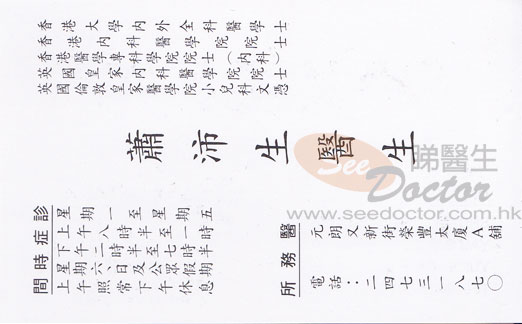 香港大學內外全科醫學士
香港內科醫學院院士
香港醫學專科學院院士（內科）
英國皇家內科醫學院院士
英國倫敦皇家醫學院小兒科文憑
蕭沛生醫生
See睇醫生
Doctor
www.seedoctor.com.hk
診症時間
星期一至星期五
上午八時半至一時
下午二時半至七時半
星期六、日及公眾假期
上午照常下午休息
醫務所
元朗又新街榮豐大廈A舖
電話：二四七三一八七〇